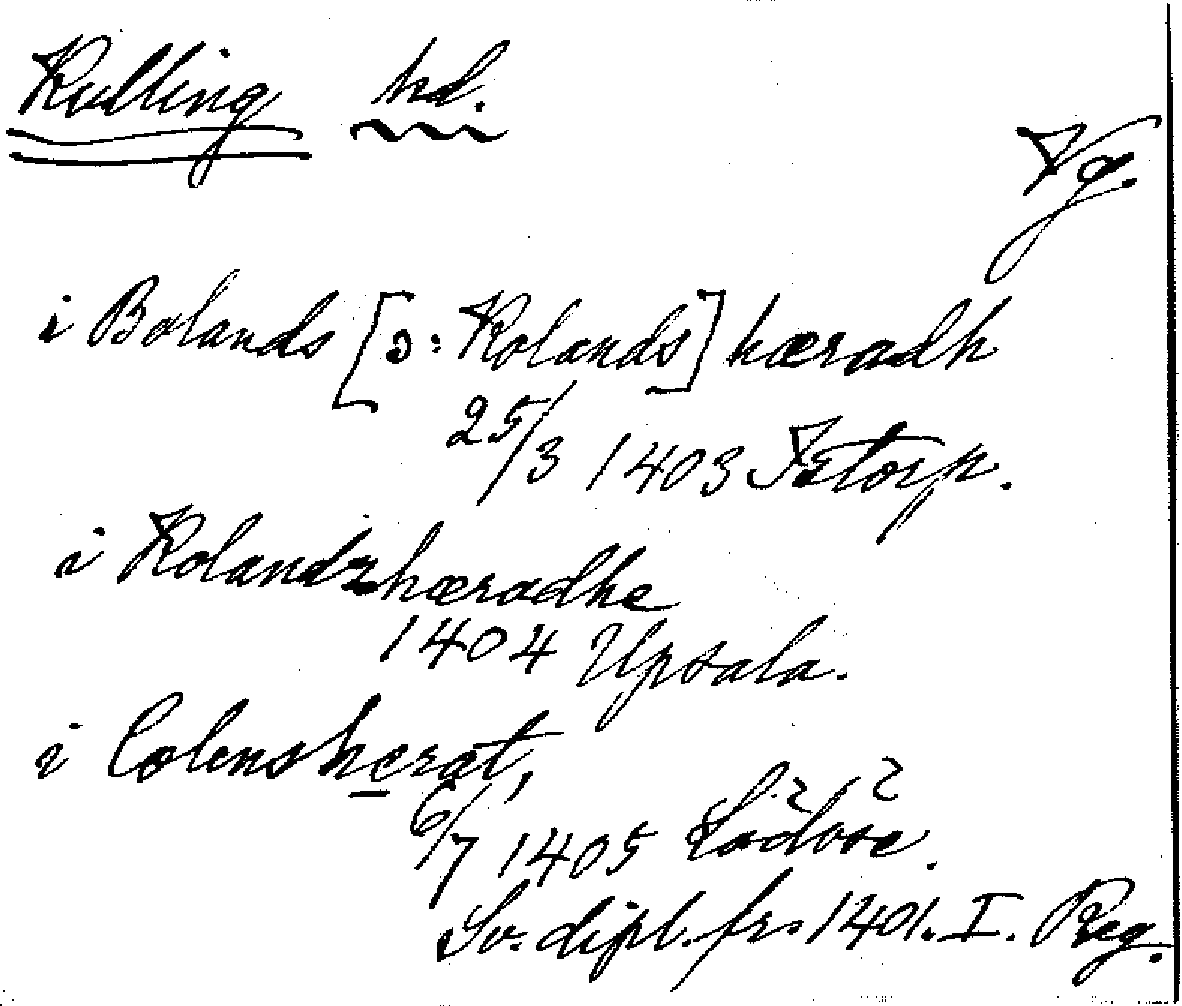 Kulling hd.
Vg.
i Bolands [ɔ: Kolands] hæradh
25/3 1403 Istorp.
i Kolandzhæradhe
1404 Upsala.
i Colensherat,
6/7 1405 Lødøse.
Sv. dipl. fr. 1401. I. Reg.